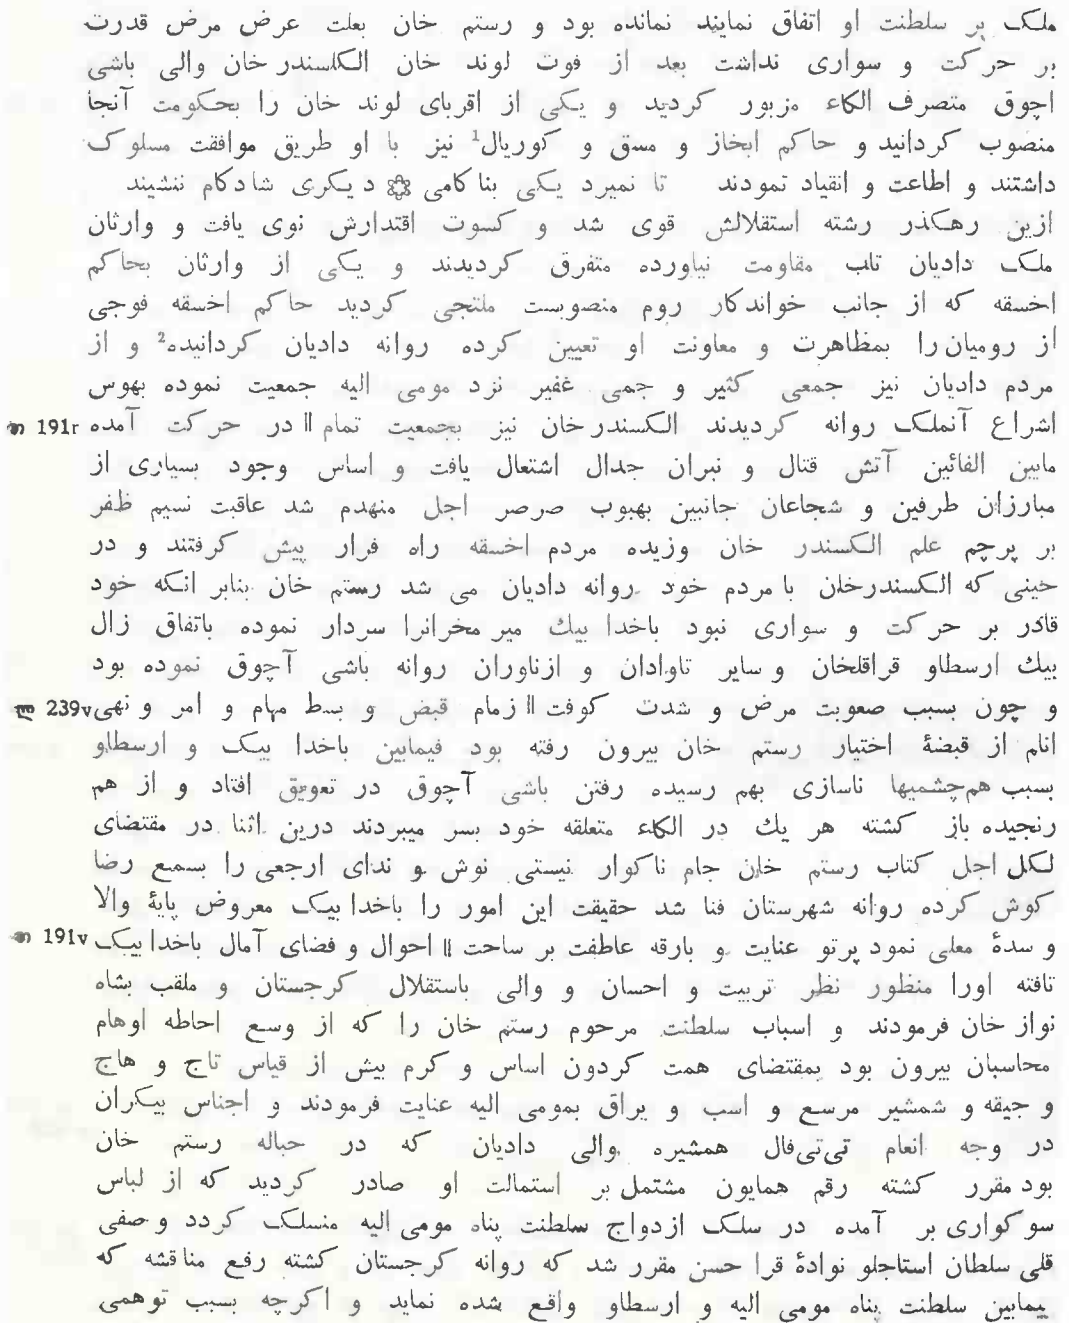 ملک بر سلطنت او اتفاق نمایند نمانده بود و رستم خان بعلت عرض مرض قدرت
بر حرکت و سواری نداشت بعد از فوت لوند خان الکسندر خان والی باشی
اچوق متصرف الکاء مزبور کردید و یکی از اقربای لوند خان را بحکومت آنجا
منصوب کردانید و حاکم ابخاز و مسق و کوریال¹ نیز با او طریق موافقت مسلوک
داشتند و اطاعت و انقیاد نمودند تا نمیرد یکی بناکامی ۞ دیکری شادکام ننشیند
ازین رهکذر رشته استقلالش قوی شد و کسوت اقتدارش نوی یافت و وارثان
ملک دادیان تاب مقاومت نیاورده متفرق کردیدند و یکی از وارثان بحاکم
اخسقه که از جانب خواندکار روم منصوبست ملتجی کردید حاکم اخسقه فوجی
از رومیان را بمظاهرت و معاونت او تعیین کرده روانه دادیان کردانیده² و از
مردم دادیان نیز جمعی کثیر و جمی غفیر نزد مومی الیه جمعیت نموده بهوس
اشراع آنملک روانه کردیدند الکسندر خان نیز بجمعیت تمام || در حرکت آمده 191r
مابین الفائین آتش قتال و نیران جدال اشتعال یافت و اساس وجود بسیاری از
مبارزان طرفین و شجاعان جانبین بهبوب صرصر اجل منهدم شد عاقبت نسیم ظفر
بر پرچم علم الکسندر خان وزیده مردم اخسقه راه فرار پیش کرفتند و در
حینی که الکسندرخان با مردم خود روانه دادیان می شد رستم خان بنابر انکه خود
قادر بر حرکت و سواری نبود باخدا بیك میر مخرانرا سردار نموده باتفاق زال
بیك ارسطاو قراقلخان و سایر تاوادان و ازناوران روانه باشی آچوق نموده بود
و چون بسبب صعوبت مرض و شدت کوفت || زمام قبض و بسط مهام و امر و نهی 239v
انام از قبضهٔ اختیار رستم خان بیرون رفته بود فیمابین باخدا بیک و ارسطاو
بسبب هم‌چشمیها ناسازی بهم رسیده رفتن باشی آچوق در تعویق افتاد و از هم
رنجیده باز کشته هر یك در الکاء متعلقه خود بسر میبردند درین اثنا در مقتضای
لکل اجل کتاب رستم خان جام ناکوار نیستی نوش و ندای ارجعی را بسمع رضا
کوش کرده روانه شهرستان فنا شد حقیقت این امور را باخدا بیک معروض پایهٔ والا
و سدهٔ معلی نمود پرتو عنایت و بارقه عاطفت بر ساحت || احوال و فضای آمال باخدا بیک 191v
تافته اورا منظور نظر تربیت و احسان و والی باستقلال کرجستان و ملقب بشاه
نواز خان فرمودند و اسباب سلطنت مرحوم رستم خان را که از وسع احاطه اوهام
محاسبان بیرون بود بمقتضای همت کردون اساس و کرم بیش از قیاس تاج و هاج
و جیقه و شمشیر مرسع و اسب و یراق بمومی الیه عنایت فرمودند و اجناس بیکران
در وجه انعام تی‌تی‌فال همشیره والی دادیان که در حباله رستم خان
بود مقرر کشته رقم همایون مشتمل بر استمالت او صادر کردید که از لباس
سوکواری بر آمده در سلک ازدواج سلطنت پناه مومی الیه منسلک کردد و صفی
قلی سلطان استاجلو نوادهٔ قرا حسن مقرر شد که روانه کرجستان کشته رفع مناقشه که
بیمابین سلطنت پناه مومی الیه و ارسطاو واقع شده نماید و اکرچه بسبب توهمی